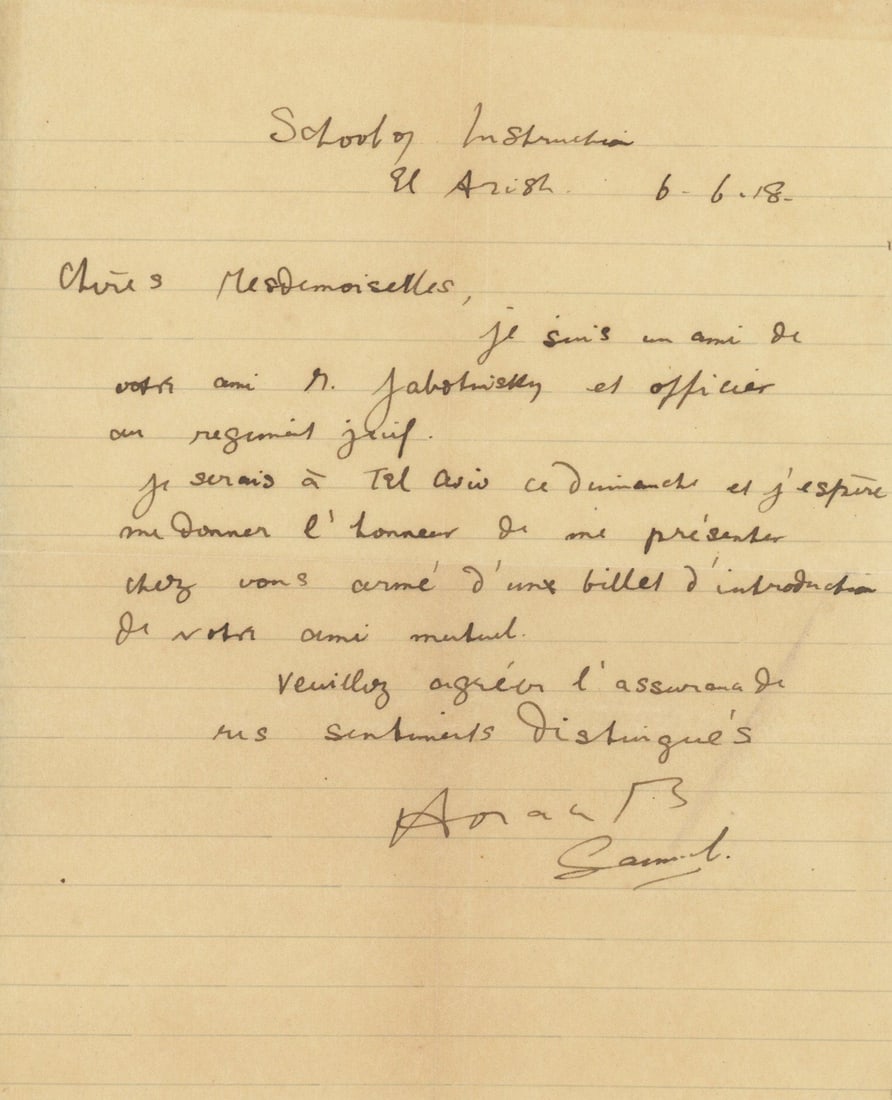 School of Instruction
El Arish. 6-6-18-
Chères Mesdemoiselles,
je suis un ami de
votre ami M. Jabotinsky et officier
au regiment juif.
je serais à Tel Aviv ce Dimanche et j'espère
me donner l'honneur de me présenter
chez vous armé d'une billet d'introduction
de votre ami mutuel.
Veuillez agréer l'assurance de
mes sentiments distingués
Horace B
Samuel.